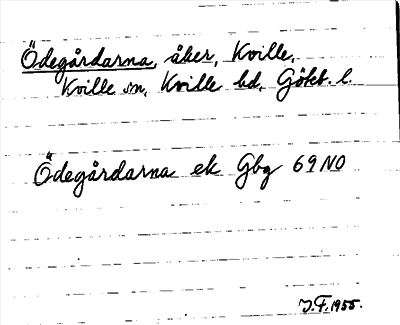 Ödegårdarna, åker, Kville,
Kville sn, Kville hd, Göteb. l.
Ödegårdarna ek Gbg 69 NO
J.F. 1955.